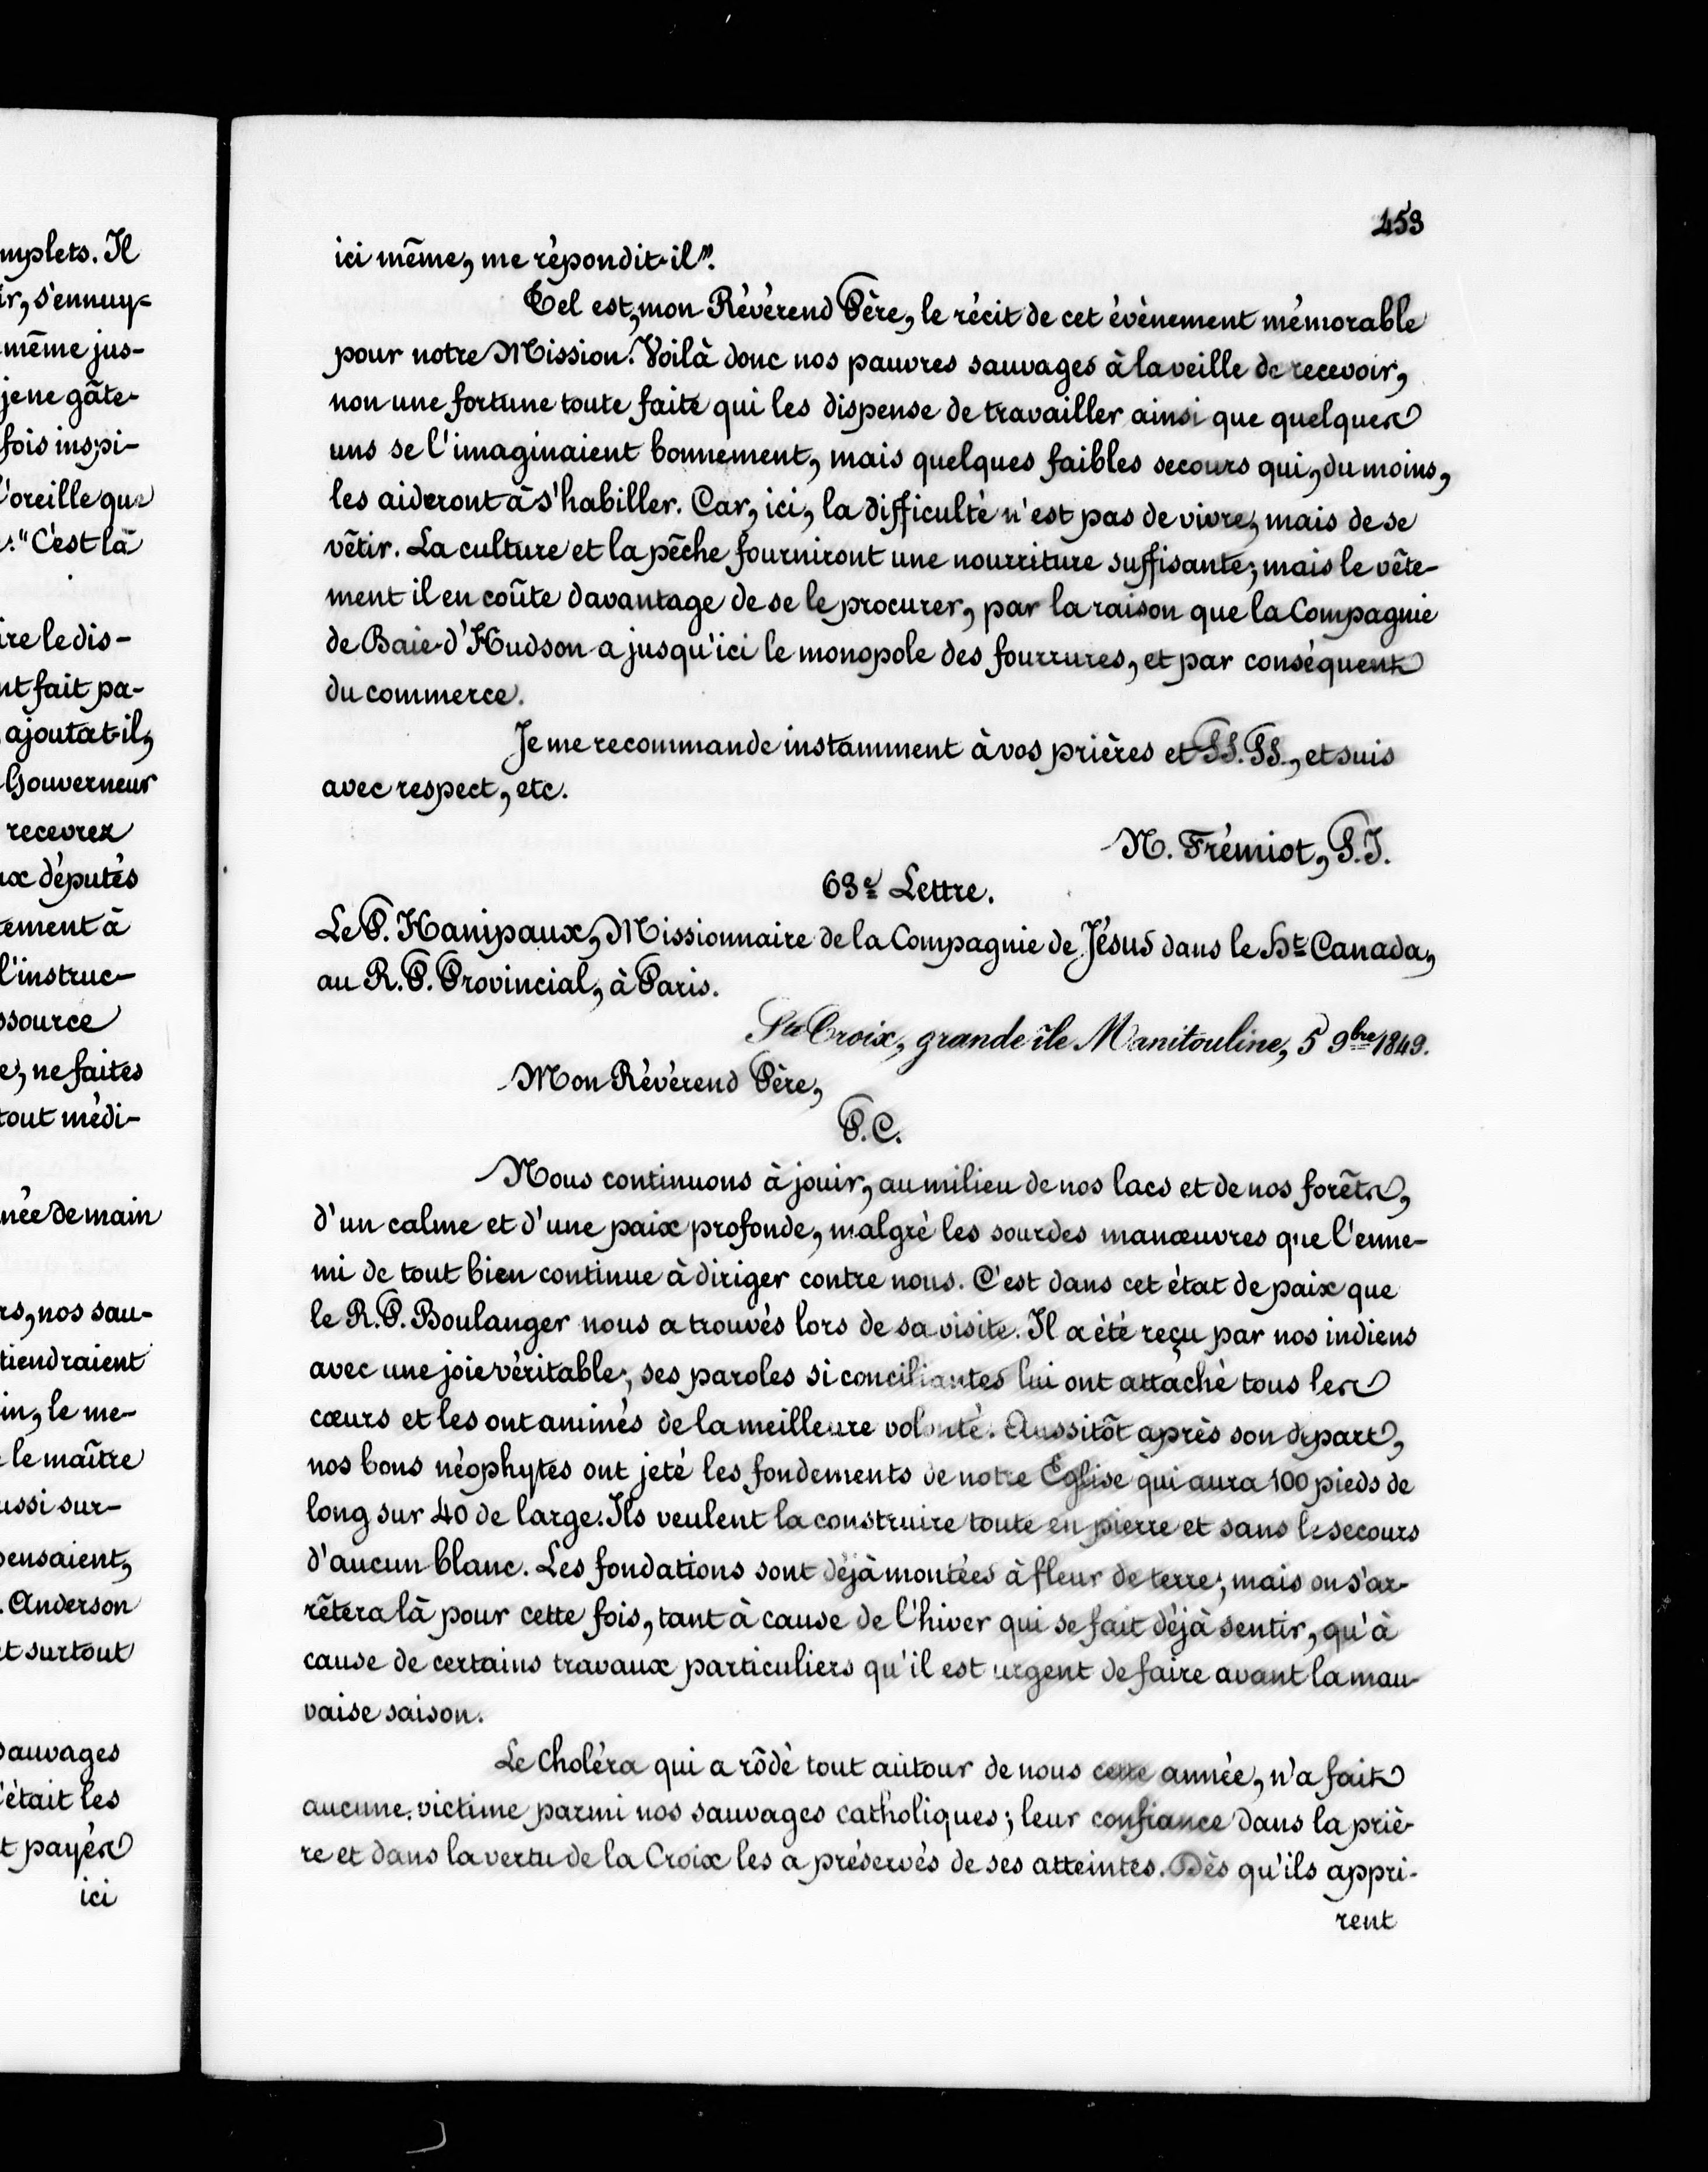 mplets. Il
ir, s'ennuy-
même jus-
je ne gâte-
fois inspi-
l'oreille que
"C'est là
ire le dis-
nt fait pa-
ajouta-t-il,
Gouverneur
recevrez
ux députés
tement à
l'instruc-
ssource
e, ne faites
tout médi-
née de main
rs, nos sau-
tiendraient
in, le me-
le maître
ussi sur-
pensaient,
. Anderson
et surtout
sauvages
c'était les
t payés
ici
453
ici même, me répondit-il".
Tel est, mon Révérend Père, le récit de cet évènement mémorable
pour notre Mission. Voilà donc nos pauvres sauvages à la veille de recevoir,
non une fortune toute faite qui les dispense de travailler ainsi que quelques
uns se l'imaginaient bonnement, mais quelques faibles secours qui, du moins,
les aideront à s'habiller. Car, ici, la difficulté n'est pas de vivre, mais de se
vêtir. La culture et la pêche fourniront une nourriture suffisante; mais le vête-
ment il en coûte davantage de se le procurer, par la raison que la Compagnie
de Baie-d'Hudson a jusqu'ici le monopole des fourrures, et par conséquent
du commerce.
Je me recommande instamment à vos prières et SS. SS., et suis
avec respect, etc.
N. Frémiot, S.J.
63e Lettre.
Le P. Hanipaux, Missionnaire de la Compagnie de Jésus dans le Ht Canada,
au R.P. Provincial, à Paris.
Ste Croix, grande île Manitouline, 5 9bre 1849.
Mon Révérend Père,
P.C.
Nous continuons à jouir, au milieu de nos lacs et de nos forêts,
d'un calme et d'une paix profonde, malgré les sourdes manœuvres que l'enne-
mi de tout bien continue à diriger contre nous. C'est dans cet état de paix que
le R.P. Boulanger nous a trouvés lors de sa visite. Il a été reçu par nos indiens
avec une joie véritable; ses paroles si conciliantes lui ont attaché tous les
cœurs et les ont animés de la meilleure volonté. Aussitôt après son départ,
nos bons néophytes ont jeté les fondements de notre Eglise qui aura 100 pieds de
long sur 40 de large. Ils veulent la construire toute en pierre et sans le secours
d'aucun blanc. Les fondations sont déjà montées à fleur de terre; mais on s'ar-
rêtera là pour cette fois, tant à cause de l'hiver qui se fait déjà sentir, qu'à
cause de certains travaux particuliers qu'il est urgent de faire avant la mau-
vaise saison.
Le Choléra qui a rôdé tout autour de nous cette année, n'a fait
aucune victime parmi nos sauvages catholiques; leur confiance dans la priè-
re et dans la vertu de la Croix les a préservés de ses atteintes. Dès qu'ils appri-
rent